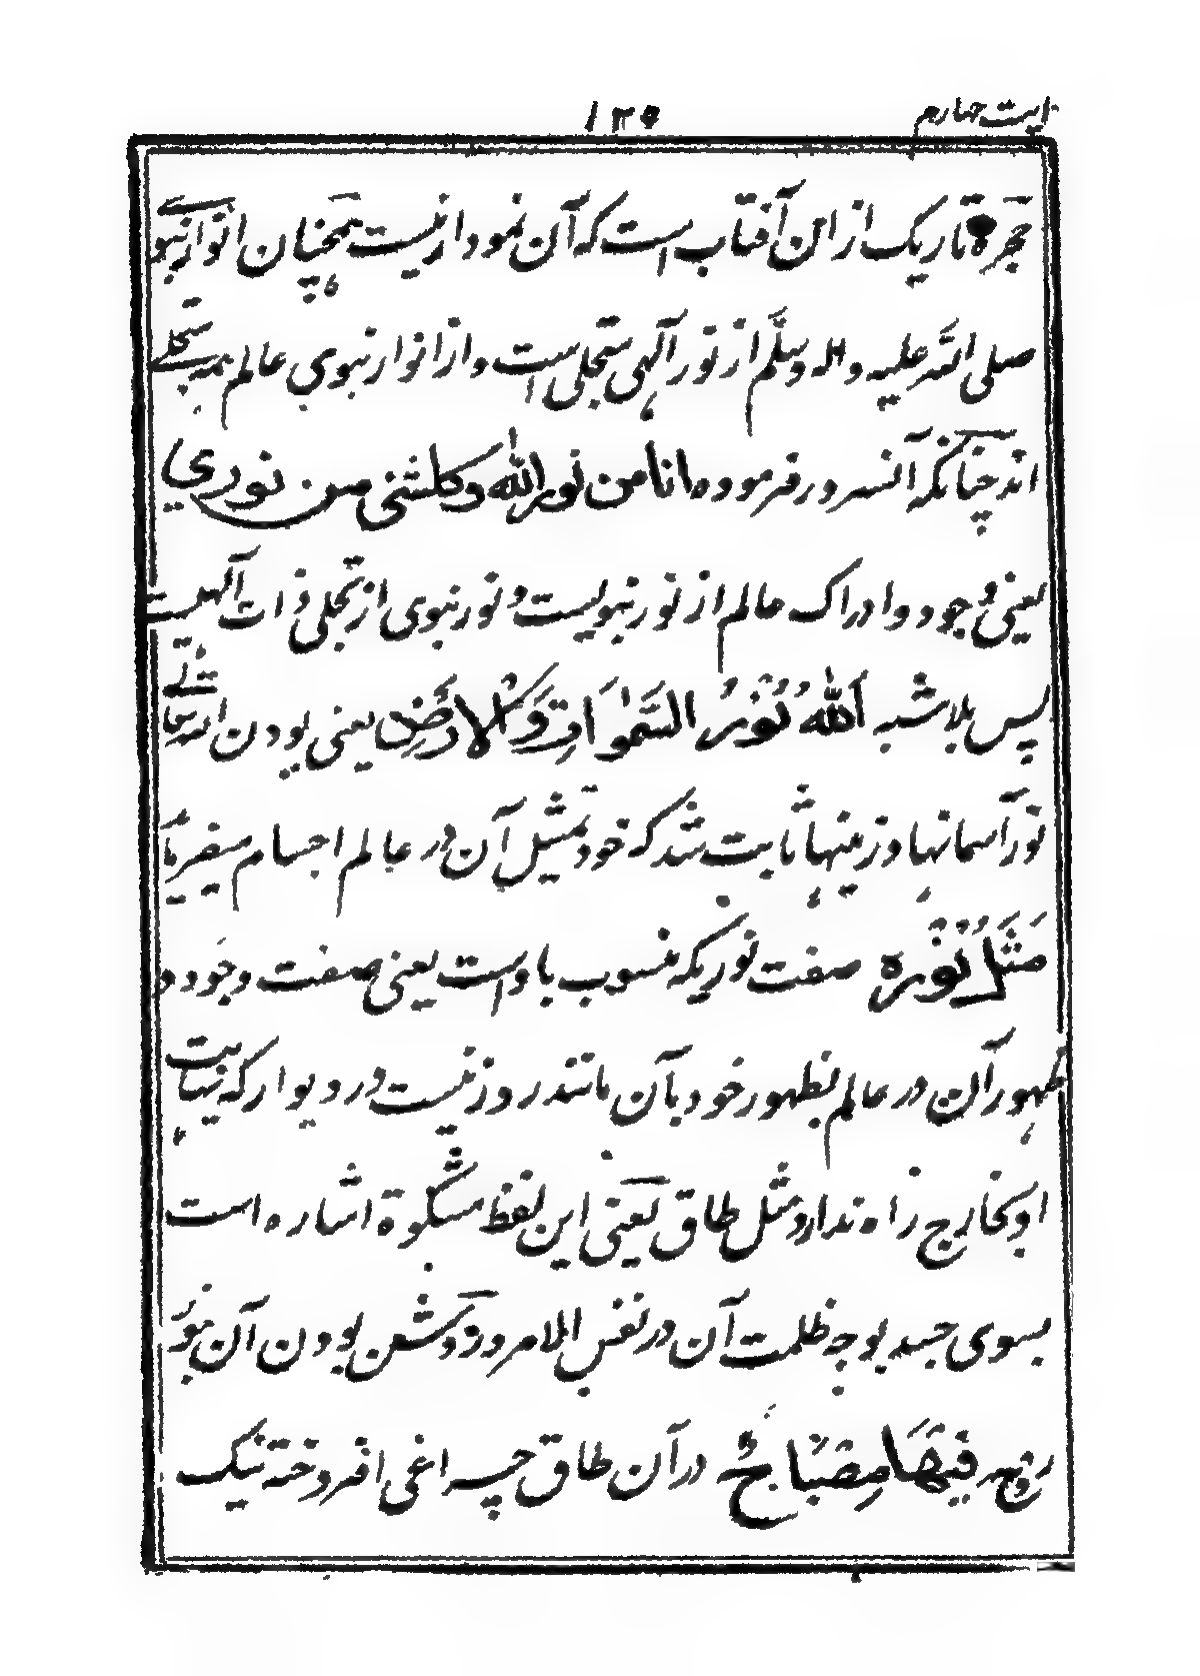 ایت چهارم
۱۲۵
حجره تاریک از این آفتاب است که آن نمودار نیست همچنان انوار نبوی
صلی الله علیه واله وسلم از نور آلهی متجلی است و از انوار نبوی عالم همه متجلی
اند چنانکه آنسرور فرموده انا من نور الله وکلشئ من نوري
یعنی وجود و ادراک عالم از نور نبویست و نور نبوی از تجلی ذات آلهیست
پس بلا شبه اَللّٰهُ نُوْرُ السَّمٰوَاتِ وَالاَرْضِ یعنی بودن الله تعالی
نور آسمانها و زمینها ثابت شد که خود تمثیل آن در عالم اجسام میفرماید
مَثَلُ نُوْرِه صفت نوریکه منسوب باوست یعنی صفت وجود و
ظهور آن در عالم بظهور خود بآن مانند روزنیست در دیوار که نهایت
او بخارج راه ندارد مثل طاق یعنی این لفظ مشکوة اشاره است
بسوی جسد بوجه ظلمت آن در نفس الامر و روشن بودن آن بنور
روح فِيْهَا مِصْبَاحٌ در آن طاق چراغی افروخته نیک